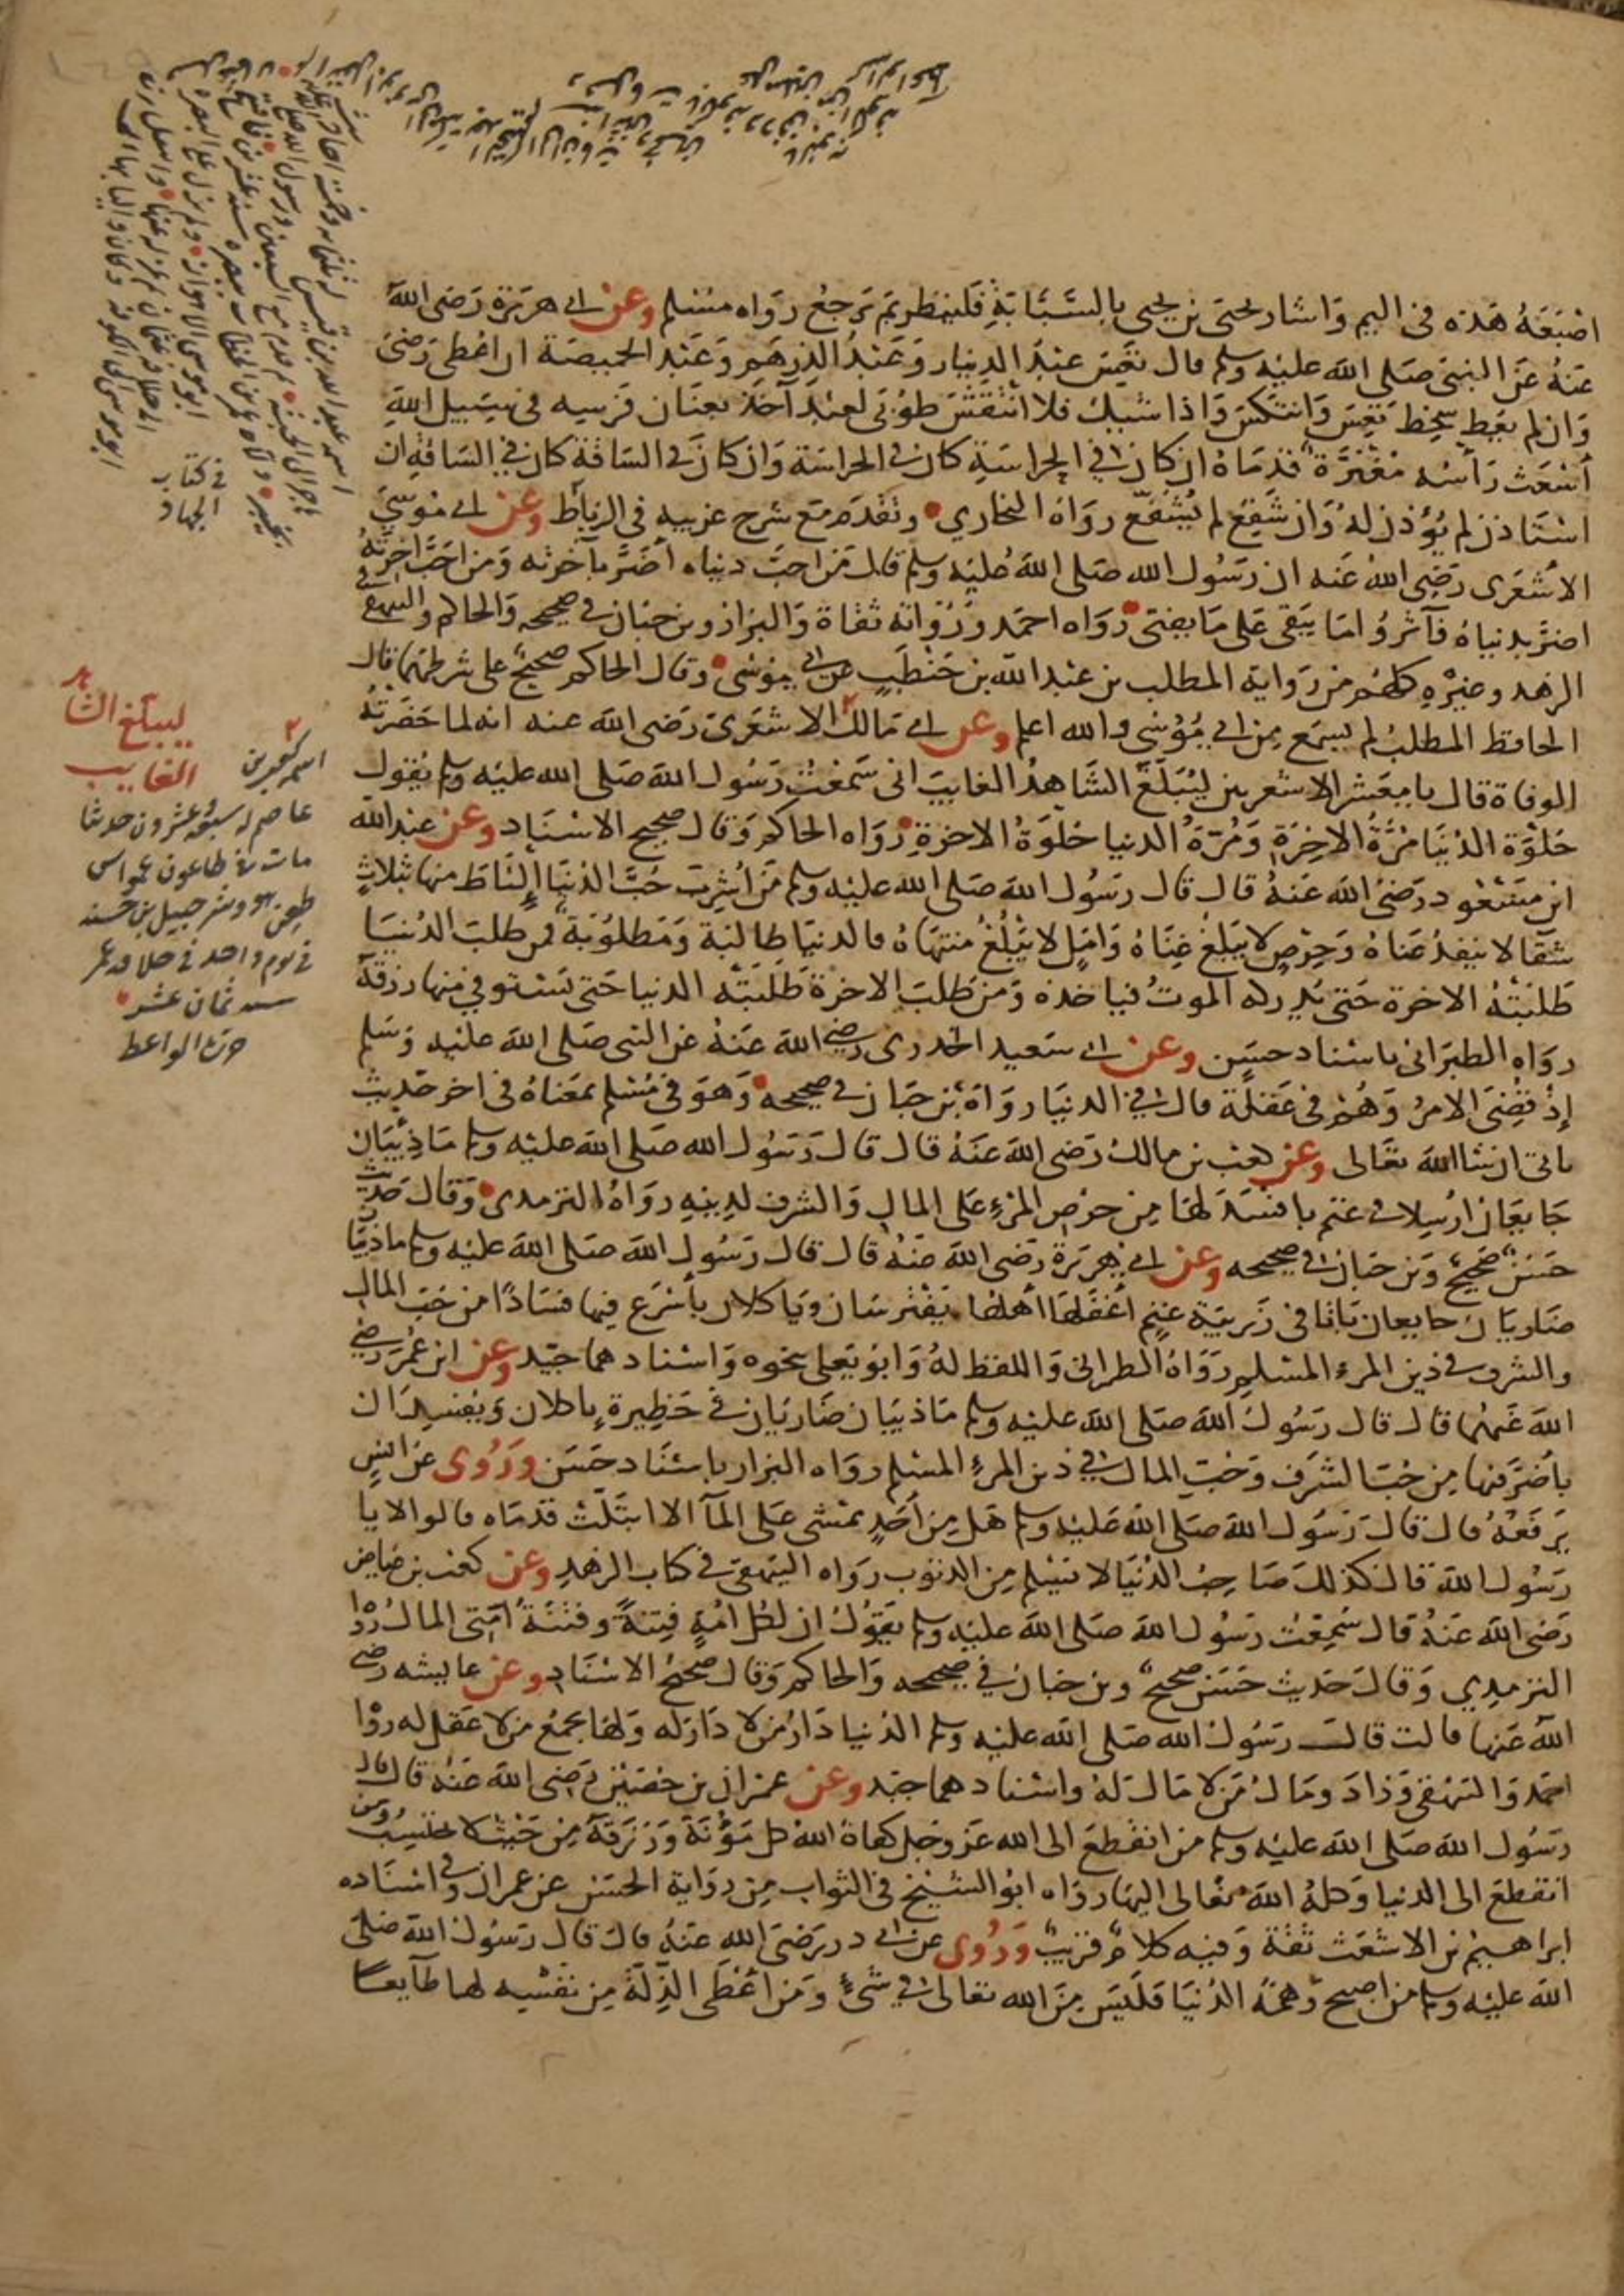 اصبعه هذه في اليم واشار يحيى بن يحيى بالسبابة فلينظر بم ترجع رواه مسلم وعن ابي هريرة رضى الله
عنه عن النبى صلى الله عليه وسلم قال تعس عبد الدينار وعبد الدرهم وعبد الخميصة ان اعطى رضى
وان لم يعط سخط تعس وانتكس واذا شيك فلا انتقش طوبى لعبد آخذ بعنان فرسه في سبيل الله
أشعث رأسه مغبرة قدماه ان كان في الحراسة كان في الحراسة وان كان في الساقة كان في الساقة ان
استاذن لم يؤذن له وان شفع لم يشفع رواه البخاري وتقدم مع شرح غريبه في الرباط وعن ابي موسى
الاشعرى رضى الله عنه ان رسول الله صلى الله عليه وسلم قال من احب دنياه أضر بآخرته ومن احب اخرته
اضر بدنياه فآثروا ما يبقى على ما يفنى رواه احمد ورواته ثقاة والبزار وبن حبان في صحيحه والحاكم والبيهقي في
الزهد وغيره كلهم من رواية المطلب بن عبد الله بن حنطب عن ابي موسى وقال الحاكم صحيح على شرطهما قال
الحافظ المطلب لم يسمع من ابي موسى والله اعلم وعن ابي مالك الاشعرى رضى الله عنه انه لما حضرته
الوفاة قال يا معشر الاشعريين ليبلغ الشاهد الغايب انى سمعت رسول الله صلى الله عليه وسلم يقول
حلوة الدنيا مرة الاخرة ومرة الدنيا حلوة الاخرة رواه الحاكم وقال صحيح الاسناد وعن عبد الله
ابن مسعود رضى الله عنه قال قال رسول الله صلى الله عليه وسلم من أشرب حب الدنيا التاط منها بثلاث
شقا لا ينفد عناه وحرص لا يبلغ غناه وامل لا يبلغ منتهاه فالدنيا طالبة ومطلوبة فمن طلب الدنيا
طلبته الاخرة حتى يدركه الموت فياخذه ومن طلب الاخرة طلبته الدنيا حتى يستوفي منها رزقه
رواه الطبرانى باسناد حسن وعن ابي سعيد الخدرى رضي الله عنه عن النبى صلى الله عليه وسلم
إذ قضى الامر وهم في غفلة قال في الدنيا رواه بن حبان في صحيحه وهو في مسلم بمعناه في اخر حديث
ياتي ان شا الله تعالى وعن كعب بن مالك رضى الله عنه قال قال رسول الله صلى الله عليه وسلم ما ذيبان
جايعان ارسلا في غنم بافسد لها من حرص المرء على المال والشرف لدينه رواه الترمدى وقال حديث
حسن صحيح وبن حبان في صحيحه وعن ابي هريرة رضى الله عنه قال قال رسول الله صلى الله عليه وسلم ما ذيبان
ضاريان جايعان باتا في زريبة غنم أغفلها أهلها يفترسان وياكلان بأسرع فيها فسادا من حب المال
والشرف في دين المرء المسلم رواه الطبرانى واللفظ له وابو يعلى بنحوه واسنادهما جيد وعن ابن عمر رضي
الله عنهما قال قال رسول الله صلى الله عليه وسلم ما ذيبان ضاريان في حظيرة ياكلان ويفسدان
بأضر فيها من حب الشرف وحب المال في دين المرء المسلم رواه البزار باسناد حسن وروى عن انس
يرفعه قال قال رسول الله صلى الله عليه وسلم هل من أحد يمشى على المآ الا ابتلت قدماه قالوا لا يا
رسول الله قال كذلك صاحب الدنيا لا يسلم من الذنوب رواه البيهقى في كتاب الزهد وعن كعب بن عياض
رضى الله عنه قال سمعت رسول الله صلى الله عليه وسلم يقول ان لكل امة فتنة وفتنة امتى المال رواه
الترمدي وقال حديث حسن صحيح وبن حبان في صحيحه والحاكم وقال صحيح الاسناد وعن عايشه رضي
الله عنها قالت قال رسول الله صلى الله عليه وسلم الدنيا دار من لا دار له ولها يجمع من لا عقل له رواه
احمد والبيهقى وزاد ومال من لا مال له واسنادهما جيد وعن عمران بن حصين رضى الله عنه قال قال
رسول الله صلى الله عليه وسلم من انقطع الى الله عز وجل كفاه الله كل مؤنة ورزقه من حيث لا يحتسب ومن
انقطع الى الدنيا وكله الله تعالى اليها رواه ابو الشيخ في الثواب من رواية الحسن عن عمران وفي اسناده
ابراهيم بن الاشعث ثقة وفيه كلام قريب وروى عن ابي در رضى الله عنه قال قال رسول الله صلى
الله عليه وسلم من اصبح وهمه الدنيا فليس من الله تعالى في شىء ومن أعطى الذلة من نفسه لها طآيعا
في كتاب
الجهاد
ليبلغ الشاهد
الغايب
اسمه كعب بن
عاصم له سبعة عشرون حديثا
مات في طاعون عمواس
طعن هو وشرحبيل بن حسنه
في يوم واحد في خلافة عمر
سنه ثمان عشر